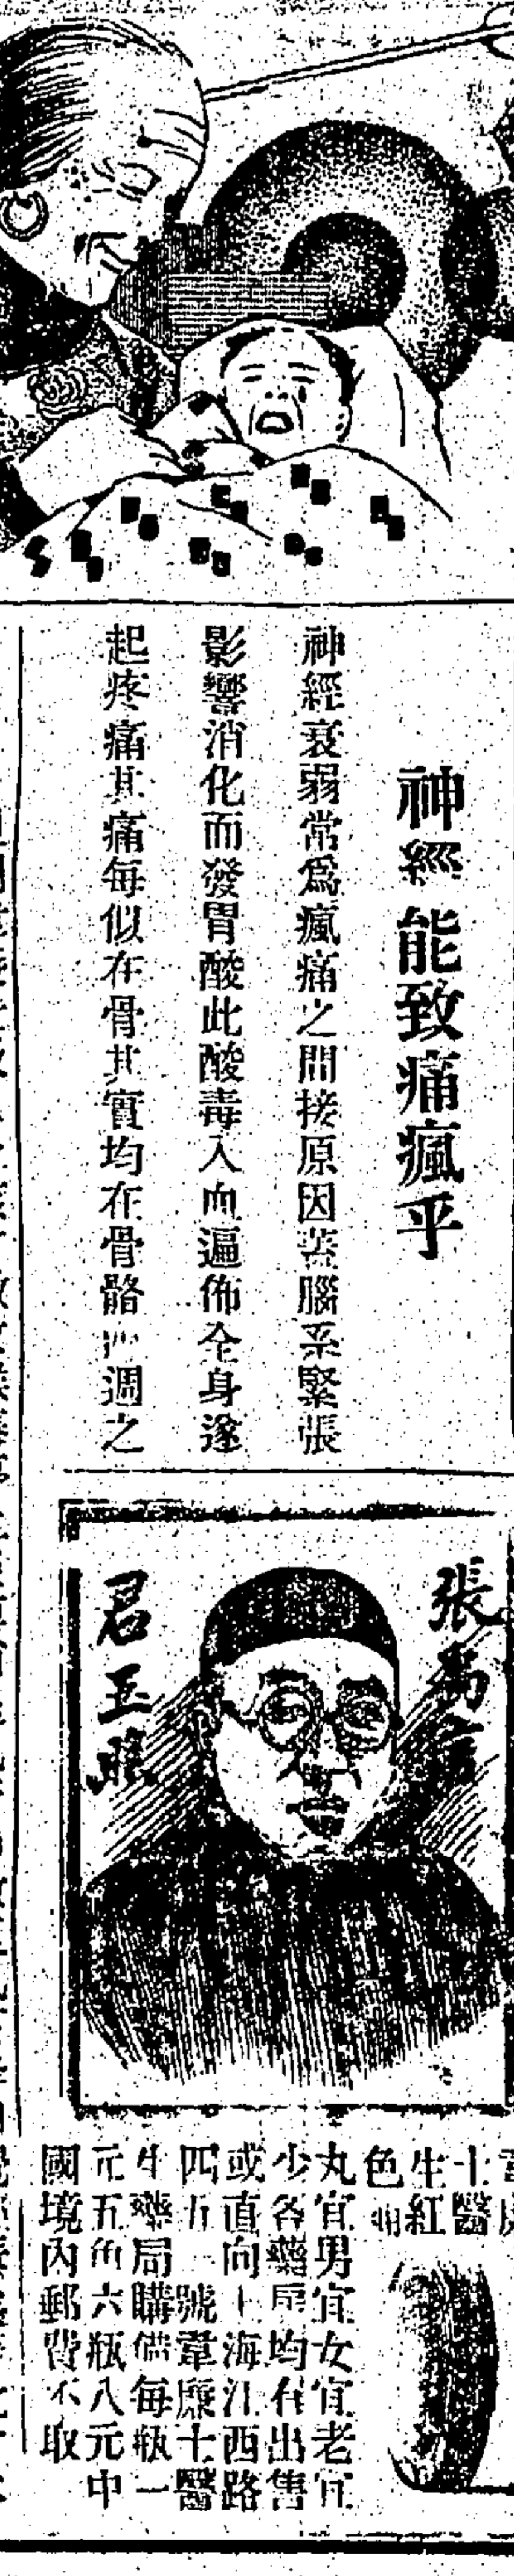 神經能致痛瘋乎
神經衰弱常爲瘋痛之間接原因蓋腦系緊張
影響消化而發胃酸此酸毒入血遍佈全身遂
起疼痛其痛每似在骨其實均在骨骼四週之
張
君玉
士醫
生紅
色
丸宜男宜女宜老宜
少各藥房均有出售
或直向上海江西路
四五一號韋廉士醫
生藥局購備每瓶一
元五角六瓶八元中
國境內郵費不取